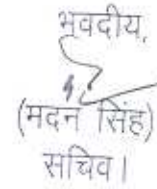 भवदीय,
(मदन सिंह)
सचिव।